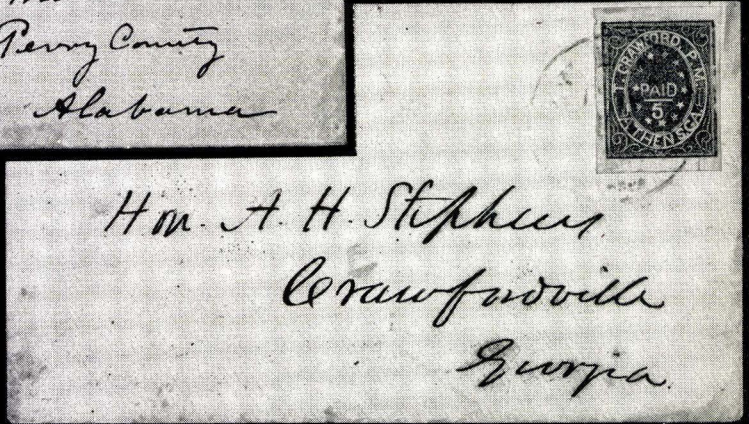 Perry County
Alabama
T. CRAWFORD, P.M.
PAID
5
ATHENS, GA.
Hon. A. H. Stephens
Crawfordville
Georgia.